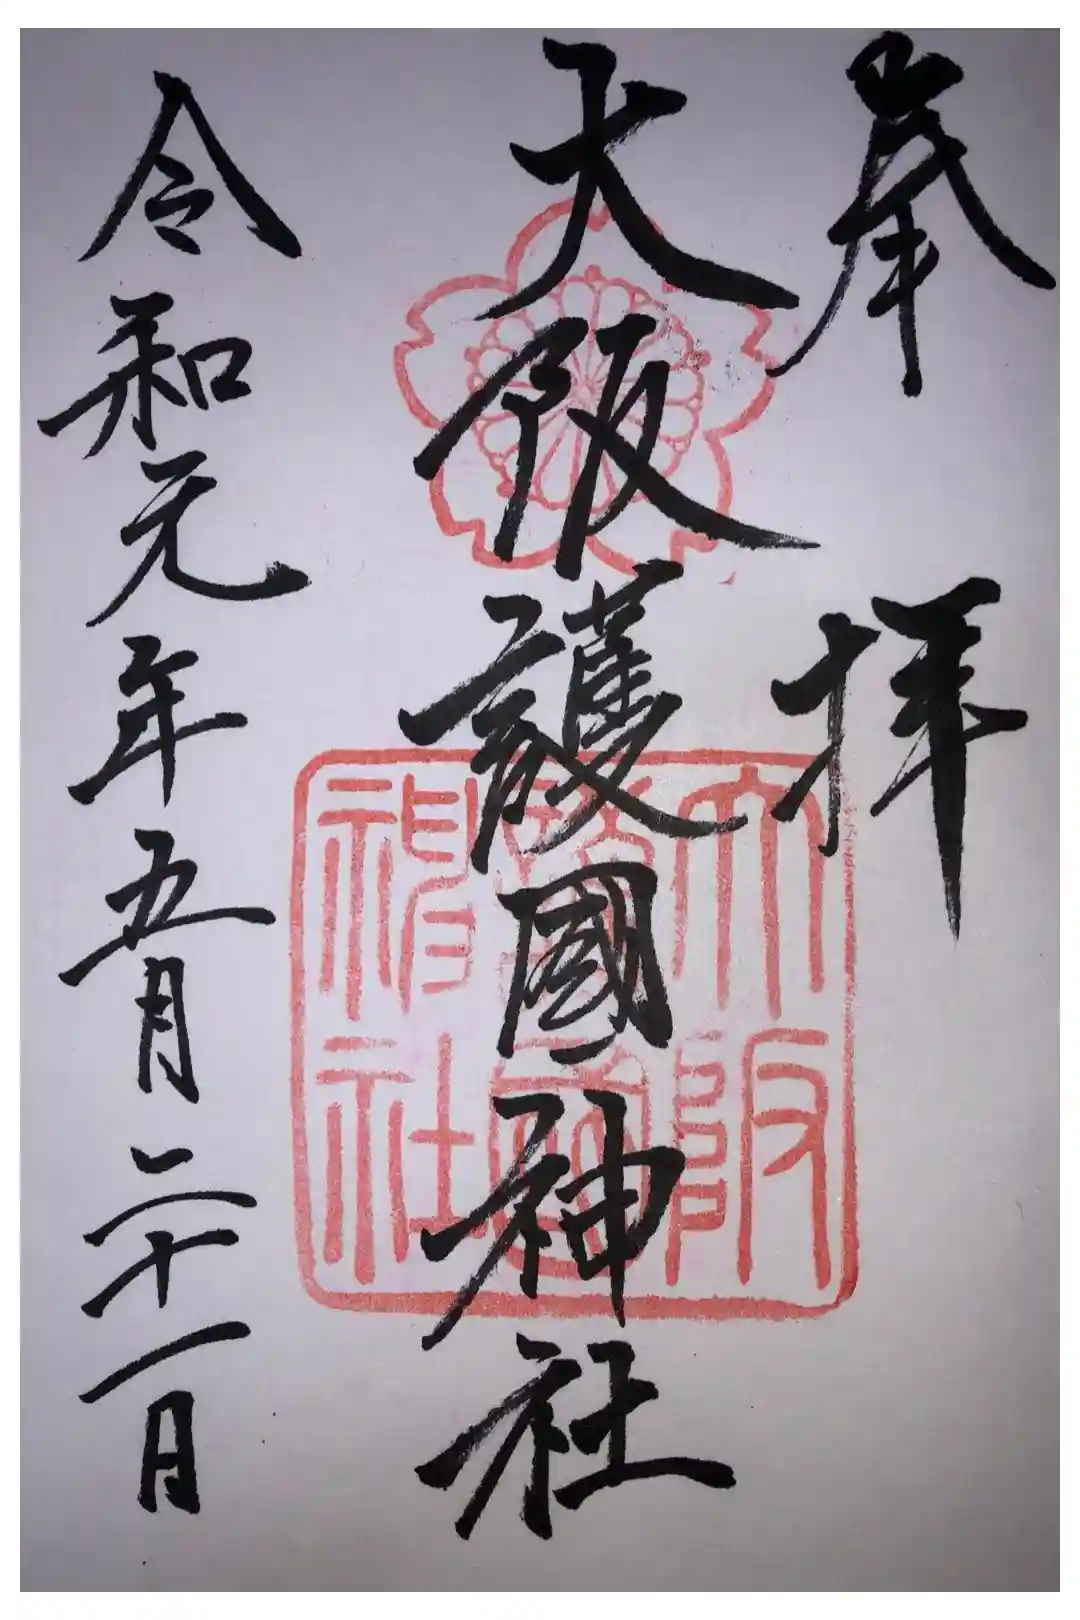 奉拝
大阪護國神社
大阪
護國
神社
令和元年五月二十一日